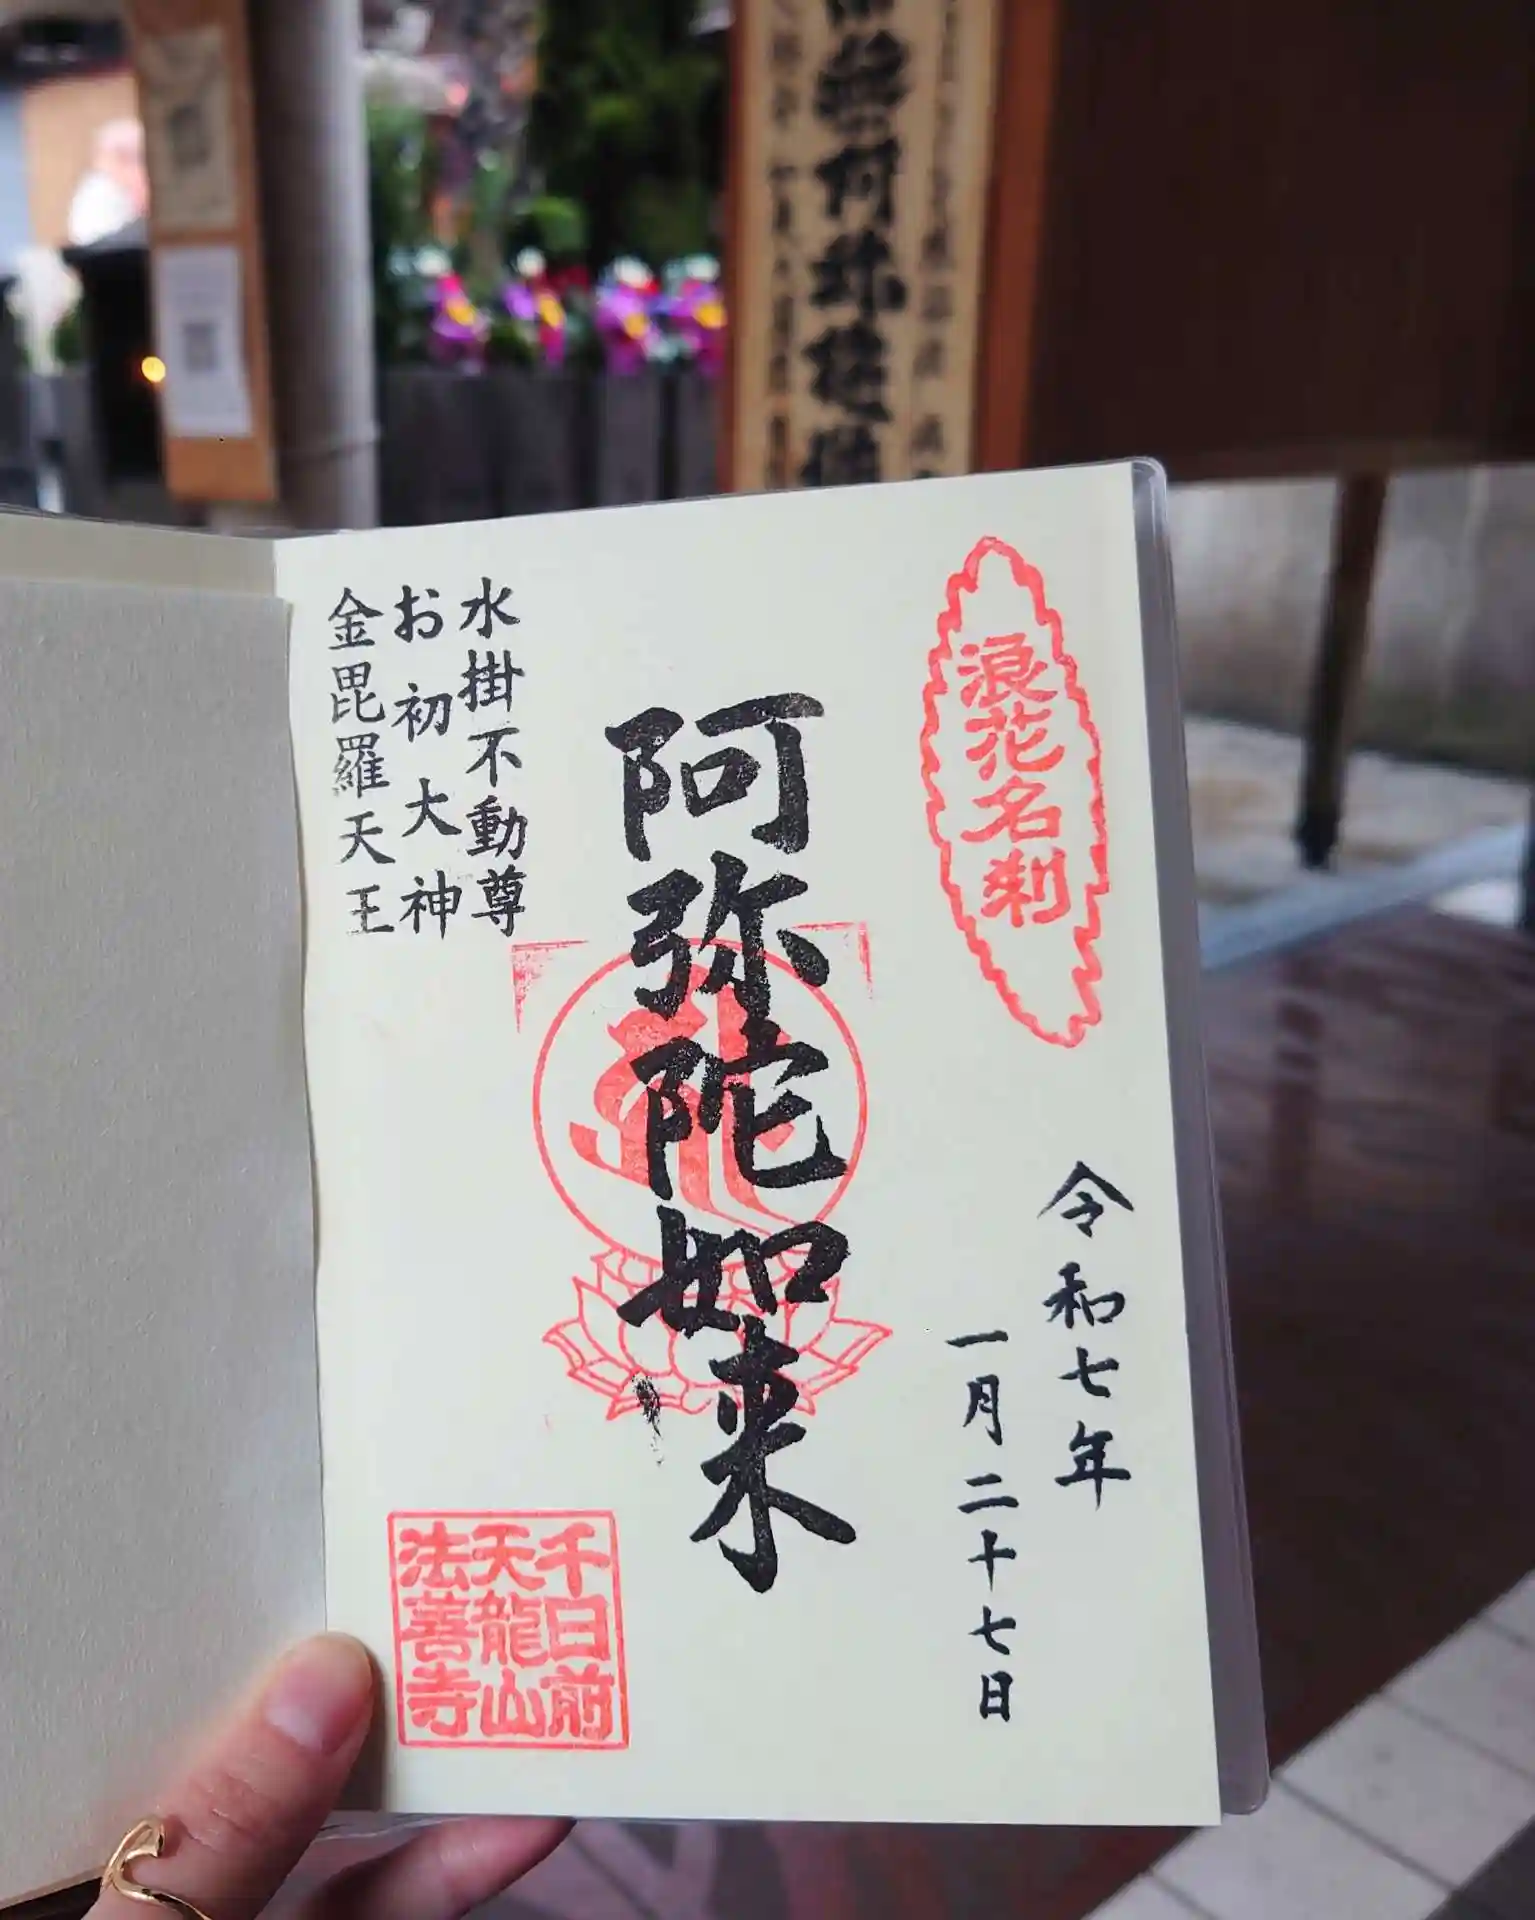 浪花名刹
令和七年
一月二十七日
阿弥陀如来
水掛不動尊
お初大神
金毘羅天王
千日前
天龍山
法善寺